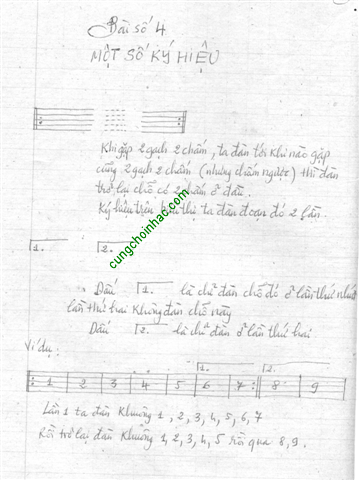 Bài số 4
MỘT SỐ KÝ HIỆU
Khi gặp 2 gạch 2 chấm, ta đàn tới khi nào gặp
cũng 2 gạch 2 chấm (nhưng chấm ngược) thì đàn
trở lại chỗ có 2 chấm ở đầu.
Ký hiệu trên biểu thị ta đàn đoạn đó 2 lần.
cungchoinhac.com
1. 2.
Dấu 1. là chỉ đàn chỗ đó ở lần thứ nhứt
lần thứ hai không đàn chỗ này
Dấu 2. là chỉ đàn ở lần thứ hai.
Ví dụ:
1. 2.
1 2 3 4 5 6 7 8 9
Lần 1 ta đàn khuông 1, 2, 3, 4, 5, 6, 7
Rồi trở lại đàn khuông 1, 2, 3, 4, 5 rồi qua 8, 9.